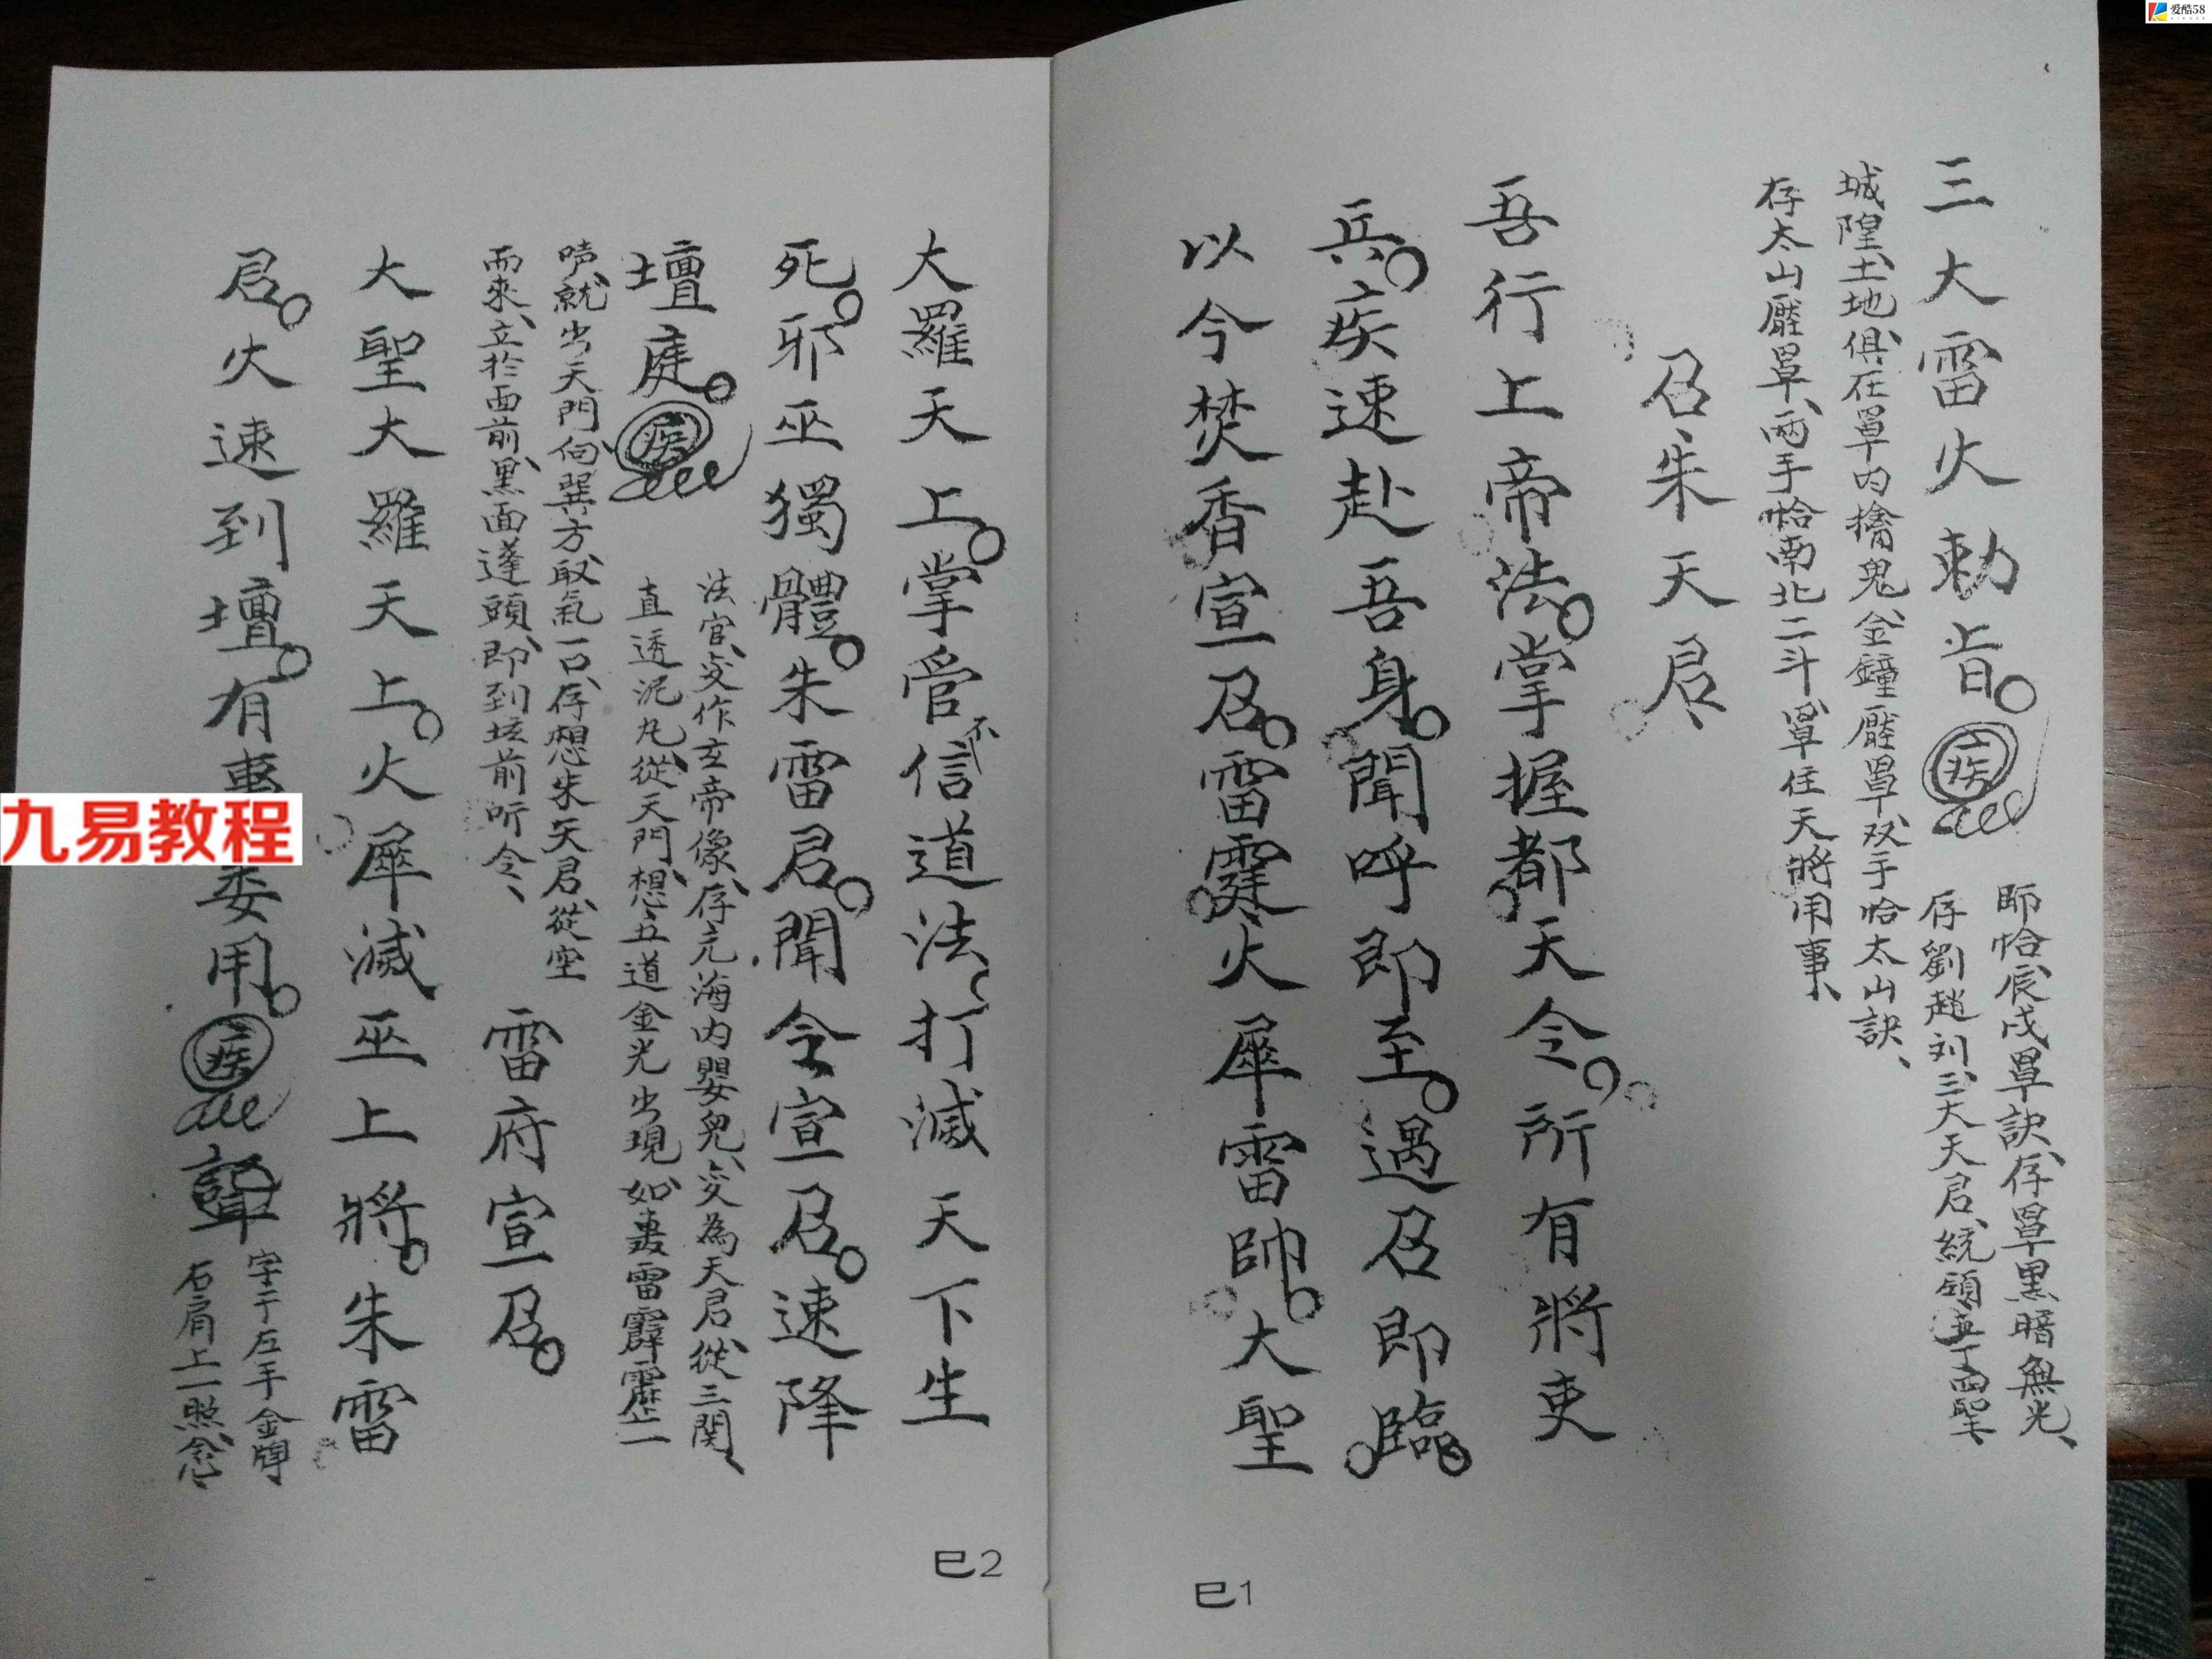 三大雷火勅旨。疾
即恰辰戌罩訣、存罩黑暗無光、
存劉趙刘三大天君、統領
城隍、土地、俱在罩内擒鬼、金鐘壓罩、双手恰太山訣、
存太山壓罩、兩手恰南北二斗、罩住天將用事、
召朱天君、
吾行上帝法。掌握都天令。所有將吏
兵。疾速赴吾身。聞呼即至。遇召即臨。
以今焚香宣召。雷霆火犀雷帥。大聖
大羅天上。掌管不信道法、打滅天下生
死。邪巫獨體。朱雷君。聞令宣召。速降
壇庭。疾
法官、变作玄帝像、存元海内嬰兒、变為天君、從三関、
直透泥丸、從天門、想五道金光出現、如轟雷霹靂一
声、就出天門、向巽方、取氣一口、存想朱天君、從空
而來、立於面前、黑面蓬頭、即到坛前听令、
雷府宣召。
大聖大羅天上。火犀滅巫上將。朱雷
君。火速到壇。有事委用。疾
字于左手金牌
右肩上一照、念、
巳1
巳2
九易教程
爱酷58